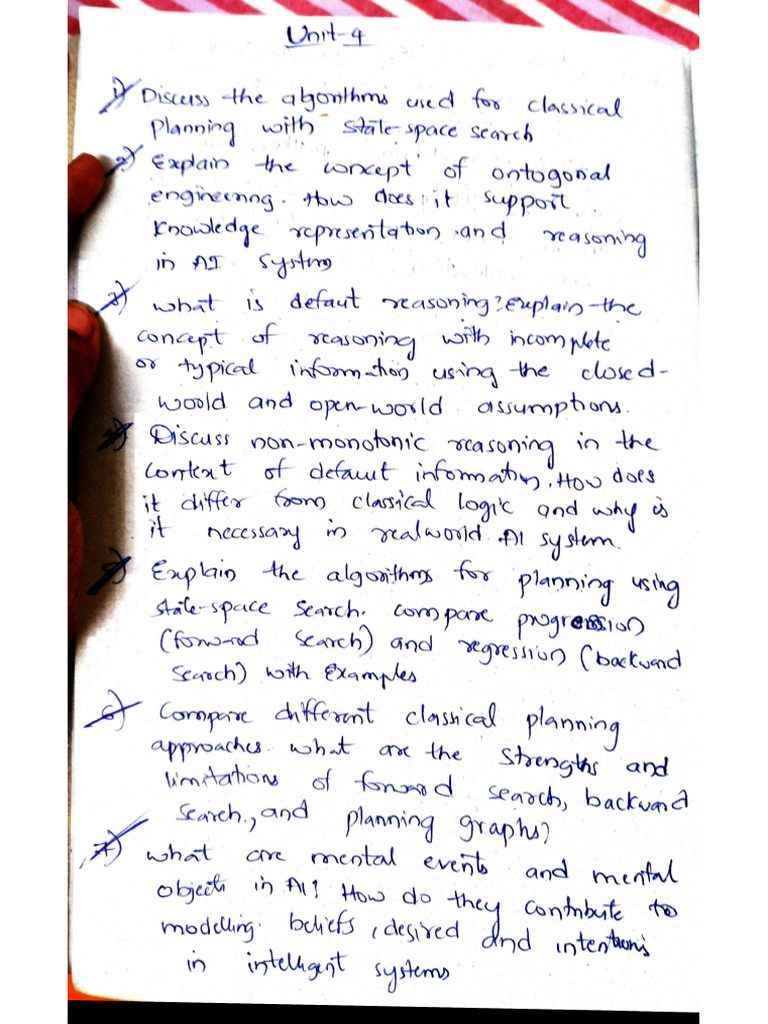 Unit-4
1) Discuss the algorithms used for classical
planning with state-space search
2) Explain the concept of ontogonal
engineering. How does it support
knowledge representation and reasoning
in AI system
3) what is defaut reasoning? explain the
concept of reasoning with incomplete
or typical information using the closed-
woold and open-world assumptions.
4) Discuss non-monotonic reasoning in the
context of defaut information. How does
it differ from classical logic and why is
it necessary in realworld AI system.
5) Explain the algorithms for planning using
state-space search. compare progression
(forward search) and regression (backward
search) with Examples
6) Compare different classical planning
approaches. what are the strengths and
limitations of forward search, backward
search, and planning graphs?
7) what are mental events and mental
objects in AI? How do they contribute to
modelling beliefs, desired and intentions
in intelligent systems